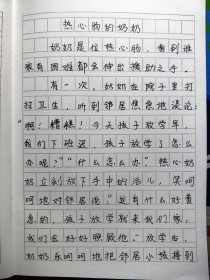 热心肠的奶奶
奶奶是位热心肠，看到谁
家有困难都会伸出援助之手。
有一次，奶奶在院子里打
扫卫生，听到邻居焦急地谈论：
“啊！糟糕！今天孩子放学早，
我们下班迟，孩子放学了怎么
办呢？”“什么怎么办”热心奶
奶立刻放下手中的活儿，笑呵
呵地对邻居说“这有什么好着
急的，孩子放学就来我们家，
我们会好好照顾他。”放学后，
奶奶乐呵呵地把邻居小孩接到